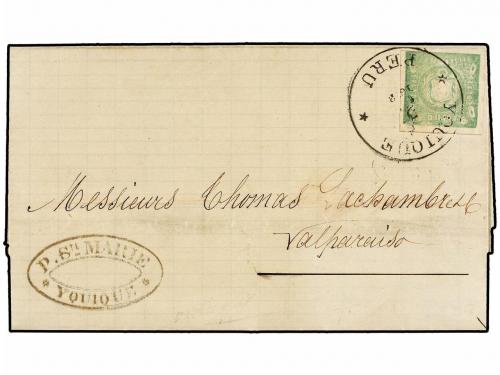 YQUIQUE
PERU
Messieurs Thomas Lachambre & C
Valparaiso
P. STE MARIE
YQUIQUE